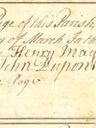 ge of this Parish
y of March In th
Henry Mag
John Dupon
Page